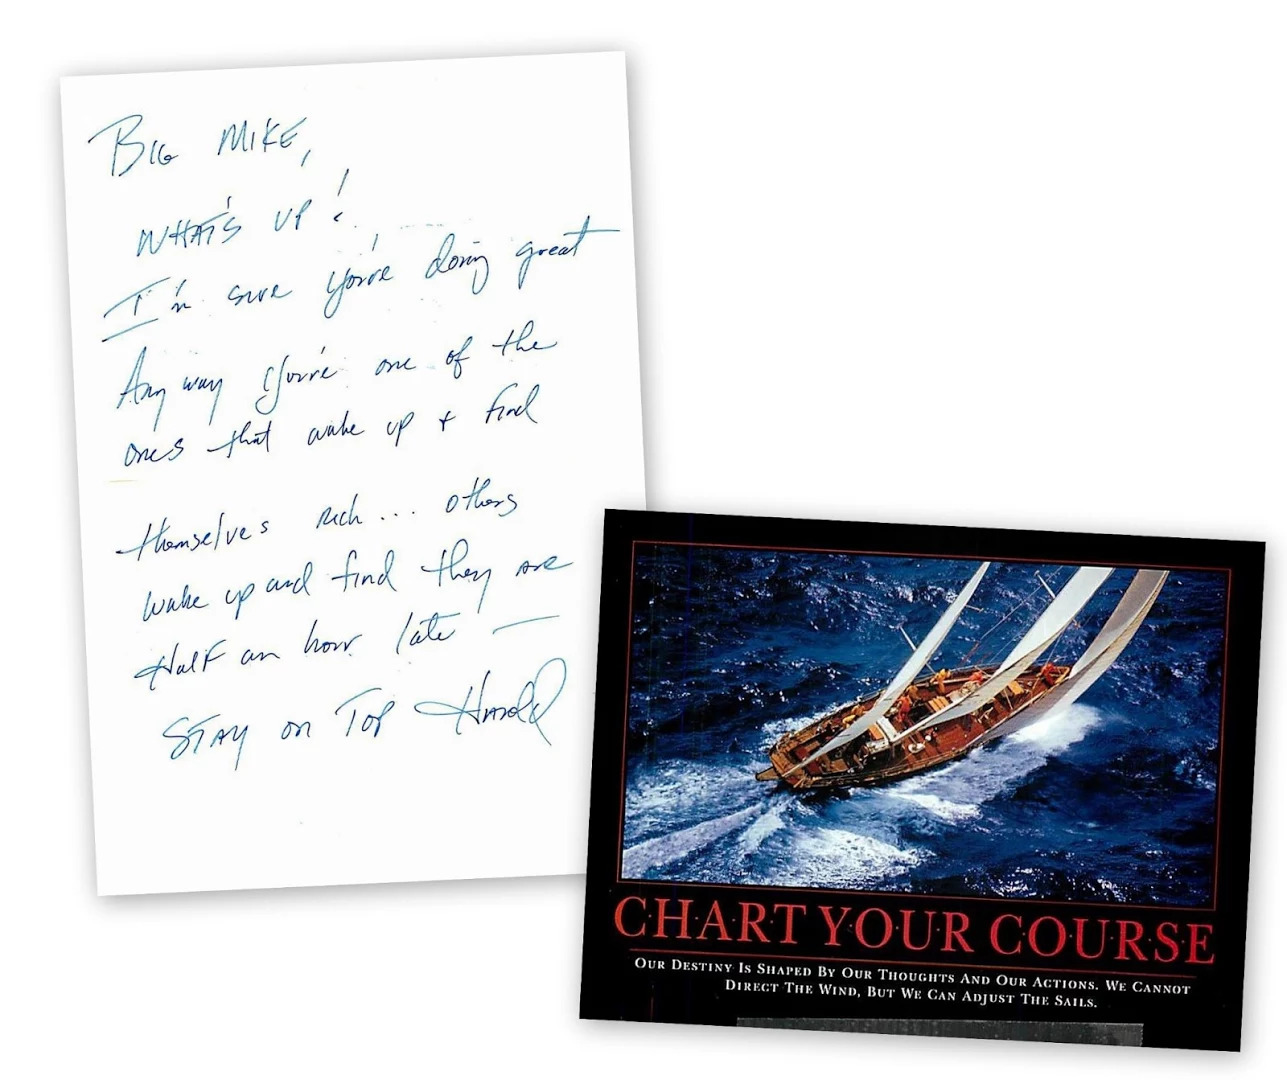 BIG MIKE,
WHAT'S UP!
I'm sure you're doing great
Anyway you're one of the
ones that wake up + find
themselves rich... others
wake up and find they are
Half an hour late —
STAY on TOP Harold
CHART YOUR COURSE
OUR DESTINY IS SHAPED BY OUR THOUGHTS AND OUR ACTIONS. WE CANNOT
DIRECT THE WIND, BUT WE CAN ADJUST THE SAILS.